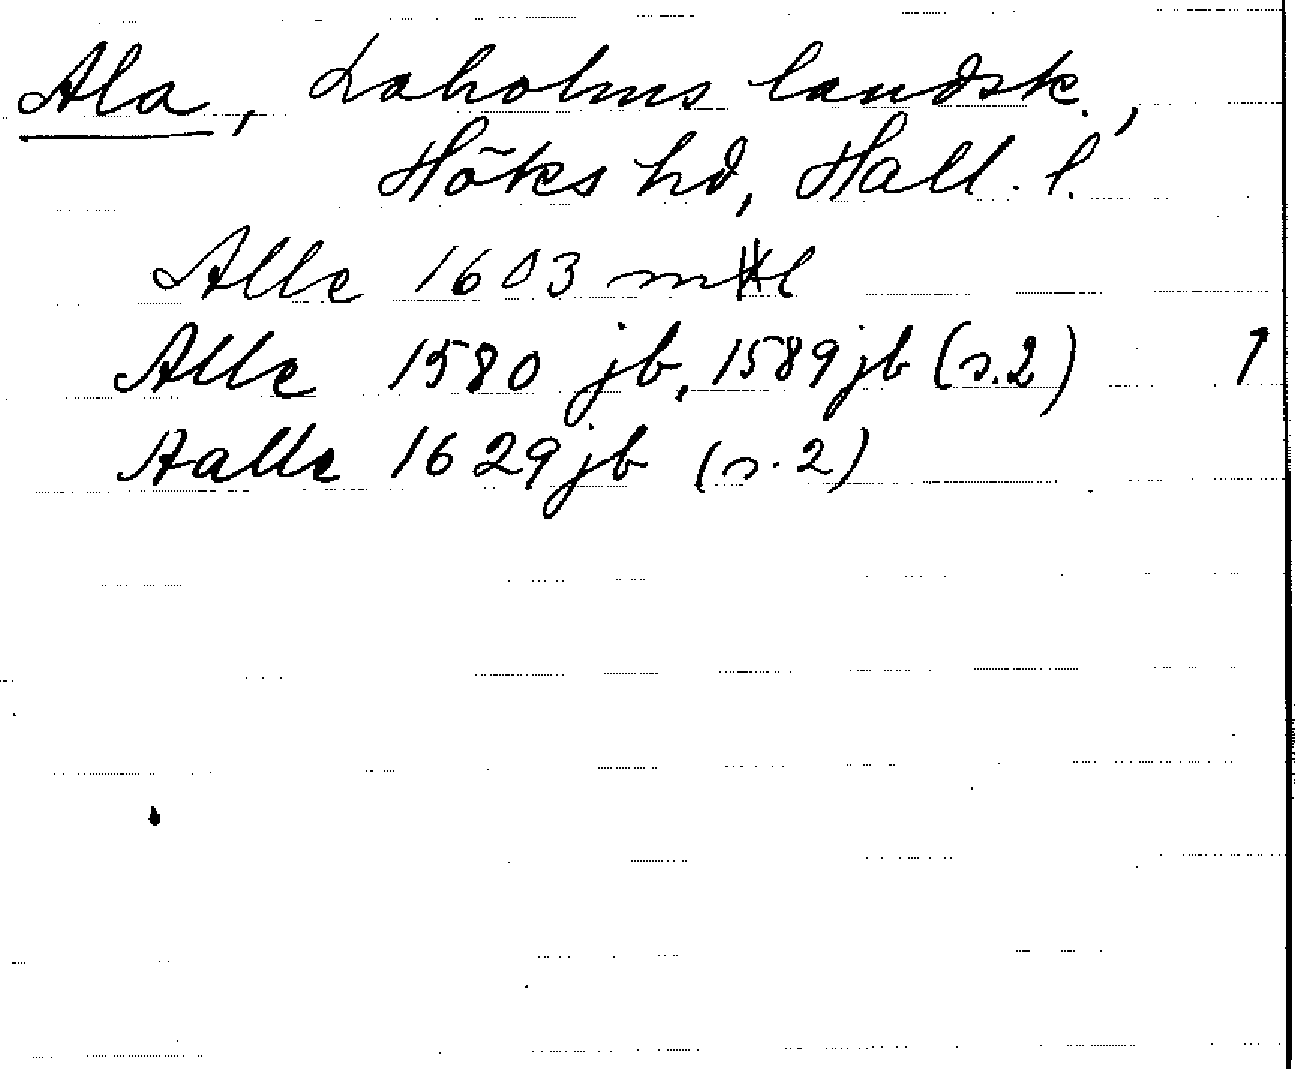 Ala, Laholms landsk.,
Höks hd, Hall. l.
Alle 1603 mtl
Alle 1580 jb, 1589 jb (s.2) 1
Aalle 1629 jb (s.2)